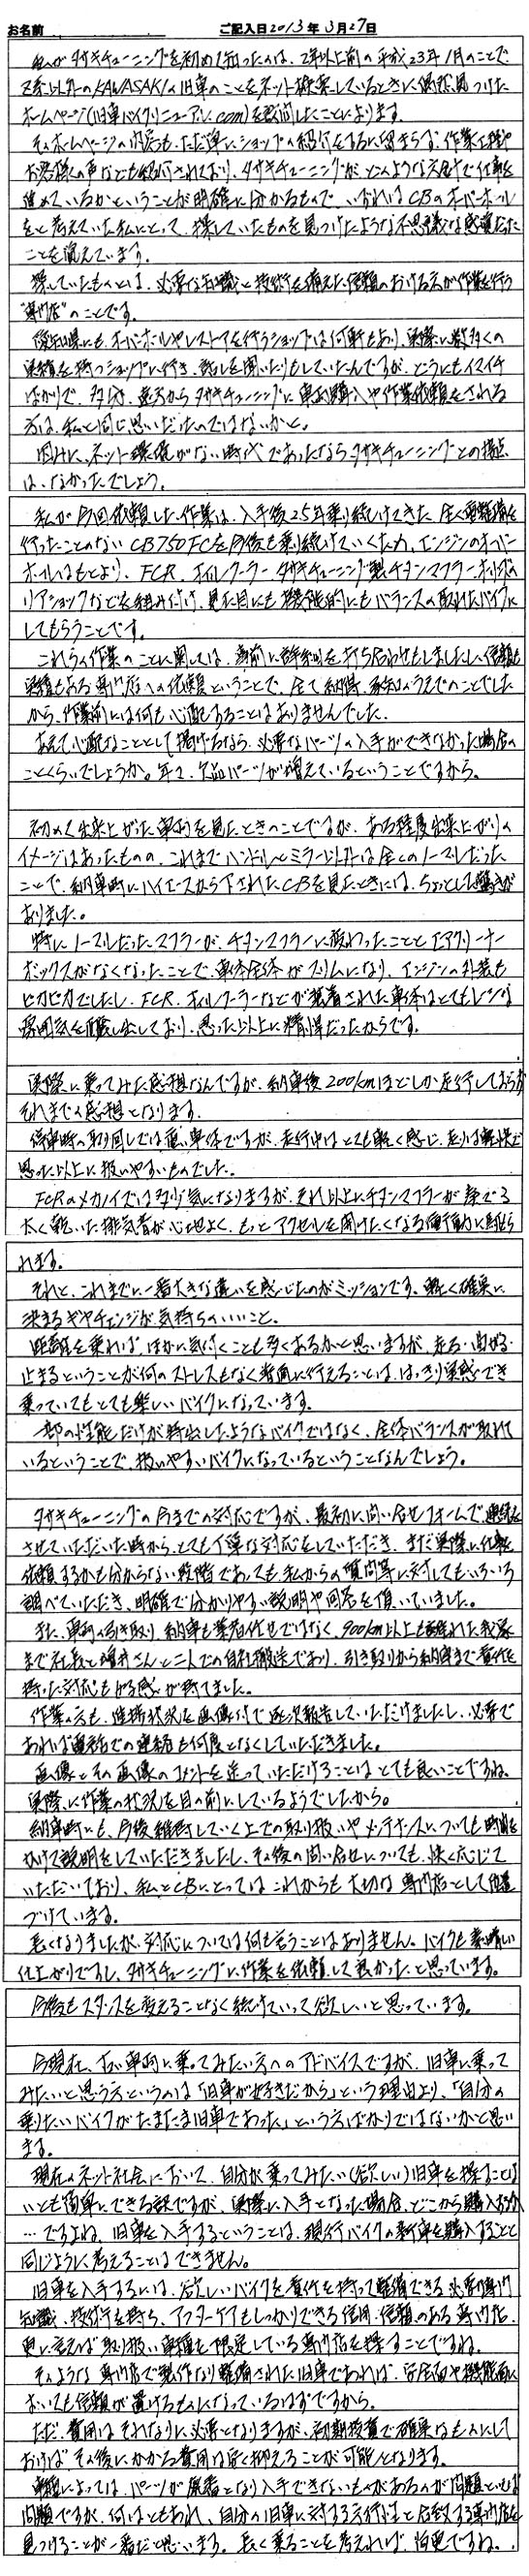 お名前 ご記入日2013年3月27日
私がタサキチューニングを初めて知ったのは、2年以上前の平成23年1月のことで
Z系以外のKAWASAKIの旧車のことをネット検索しているときに偶然見つけた
ホームページ(旧車バイクリニューアル.com)を訪問したことによります。
そのホームページの内容も、ただ単にショップの紹介をするに留まらず、作業工程や
お客様の声なども紹介されており、タサキチューニングが、どのような姿勢で仕事を
進めているかということが明確に分かるもので、いずれはCBのオーバーホール
をと考えていた私にとって、探していたものを見つけたような不思議な感覚だった
ことを覚えています。
探していたものとは、必要な知識と技術を備えた信頼のおける方が作業を行う
"専門店"のことです。
愛知県にも、オーバーホールやレストアを行うショップは何軒もあり、実際に数多くの
実績を持つショップに行き、話しを聞いたりもしていたんですが、どうにもイマイチ
ばかりで、多分、遠方からタサキチューニングに車両購入や作業依頼をされる
方は、私と同じ思いだったのではないかと。
因みに、ネット環境がない時代であったならタサキチューニングとの接点
は、なかったでしょう。
私が今回依頼した作業は、入手後25年乗り続けてきた、全く重整備を
行ったことのないCB750FCを今後も乗り続けていくため、エンジンのオーバー
ホールはもとより、FCR、オイルクーラー、タサキチューニング製チタンマフラー、オーリンズの
リアショックなどを組み付け、見た目にも機能的にもバランスの取れたバイクに
してもらうことです。
これらの作業のことに関しては、事前に詳細な打ち合わせもしましたし、信頼も
実績もある専門店への依頼ということで、全て納得、承知のうえでのことでした
から、作業前には何も心配することはありませんでした。
あえて心配なこととして掲げるなら、必要なパーツの入手ができなかった場合の
ことくらいでしょうか。年々、欠品パーツが増えているということですから。
初めて出来上がった車両を見たときのことですが、ある程度出来上がりの
イメージはあったものの、これまでハンドルとミラー以外は全くのノーマルだった
ことで、納車時にハイエースから下されたCBを見たときには、ちょっとした驚きが
ありました。
特に、ノーマルだったマフラーが、チタンマフラーに変わったこととエアクリーナー
ボックスがなくなったことで、車体全体がスリムになり、エンジンの外装も
ピカピカでしたし、FCR、オイルクーラーなどが装着された車体はとてもレーシーな
雰囲気を醸し出しており、思った以上に精悍だったからです。
実際に乗ってみた感想なんですが、納車後200kmほどしか走行しておらず
それまでの感想となります。
停車時の取り回しでは重い車体ですが、走行中はとても軽く感じ、走りは軽快で
思った以上に扱いやすいものでした。
FCRのメカノイズは多少気になりますが、それ以上にチタンマフラーが奏でる
太く乾いた排気音が心地よく、もっとアクセルを開けたくなる衝動に駆ら
れます。
それと、これまでに一番大きな違いを感じたのがミッションです。軽く確実に
決まるギヤチェンジが気持ちのいいこと。
距離を乗れば、ほかに気付くことも多くあるかと思いますが、走る・曲がる・
止まるということが何のストレスもなく普通に行えることは、はっきり実感でき
乗っていてもとても楽しいバイクになっています。
一部の性能だけが特出したようなバイクではなく、全体バランスが取れて
いるということで、扱いやすいバイクになっているということなんでしょう。
タサキチューニングの今までの対応ですが、最初に問い合せフォームで連絡を
させていただいた時から、とても丁寧な対応をしていただき、まだ実際に仕事を
依頼するかも分からない段階であっても私からの質問等に対してもいろいろ
調べていただき、明確で分かりやすい説明や回答を頂いていました。
また、車両の引き取り、納車も業者任せではなく、900km以上も離れた我家
まで社長と増井さんと二人での自社搬送であり、引き取りから納車まで責任を
持った対応も好感が持てました。
作業の方も、進捗状況を画像付で逐次報告していただけましたし、必要で
あれば電話での連絡も何度となくしていただきました。
画像とその画像のコメントを送っていただけることはとても良いことですね。
実際に作業の状況を目の前にしているようでしたから。
納車時にも、今後維持していく上での取り扱いやメンテナンスについても時間を
かけて説明をしていただきましたし、その後の問い合せについても、快く応じて
いただいており、私とCBにとってはこれからも大切な専門店として位置
づけています。
長くなりましたが、対応については何も言うことはありません。バイクも素晴しい
仕上がりですし、タサキチューニングに作業を依頼して良かったと思っています。
今後もスタンスを変えることなく続けていって欲しいと思っています。
今現在、古い車両に乗ってみたい方へのアドバイスですが、旧車に乗って
みたいと思う方というのは「旧車が好きだから」という理由より、「自分の
乗りたいバイクがたまたま旧車であった」という方ばかりではないかと思い
ます。
現在のネット社会において、自分が乗ってみたい(欲しい)旧車を探すことは
いとも簡単にできる訳ですが、実際に入手となった場合、どこから購入するか
…ですよね。旧車を入手するということは、現行バイクの新車を購入することと
同じように考えることはできません。
旧車を入手するには、欲しいバイクを責任を持って整備できる必要な専門
知識、技術を持ち、アフターケアもしっかりできる信用・信頼のある専門店、
更に言えば取り扱い車種を限定している専門店を探すことですね。
そのような専門店で製作なり整備された旧車であれば、安全面や機能面に
おいても信頼が置けるものになっているはずですから。
ただ、費用はそれなりに必要となりますが、初期投資で確実なものにして
おけば、その後にかかる費用は安く抑えることが可能となります。
車種によっては、パーツが廃番となり入手できないものがあるのが問題といえば
問題ですが、何はともあれ、自分の旧車に対する方向性と合致する専門店を
見つけることが一番だと思います。長く乗ることを考えれば、尚更ですね。